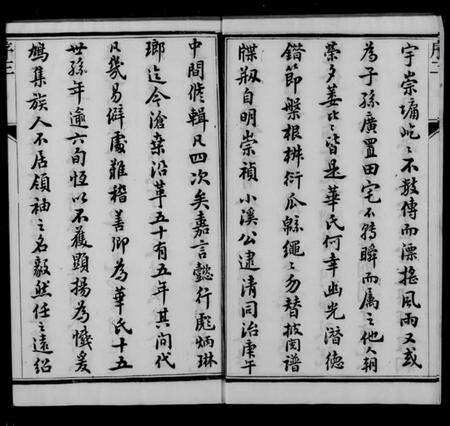 宇崇墉屹々不數傳而漂搖風雨又或
為子孫廣置田宅不轉瞬而屬之他人朝
榮夕萎比々皆是華氏何幸幽光潛德
錯節槃根椒衍瓜緜繩々勿替披閱譜
牒瓶自明崇禎小溪公逮清同治庚午
中間修輯凡四次矣嘉言懿行彪炳琳
瑯迄今滄桑沿革五十有五年其间代
凡幾易僻處難稽善卿為華氏十五
世孫年逾六旬恒以不獲顯揚為憾爰
鳩集族人不居領袖之名毅然任之遠紹